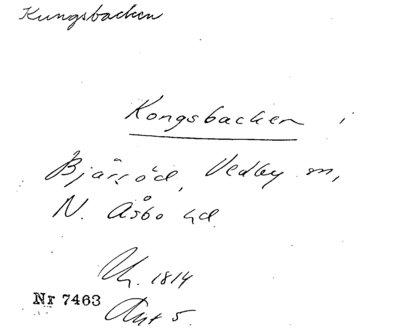 Kungsbacken
Kongsbacken i
Bjärröd, Vedby sn,
N. Åsbo hd
1814
Nr 7463
Akt 5.